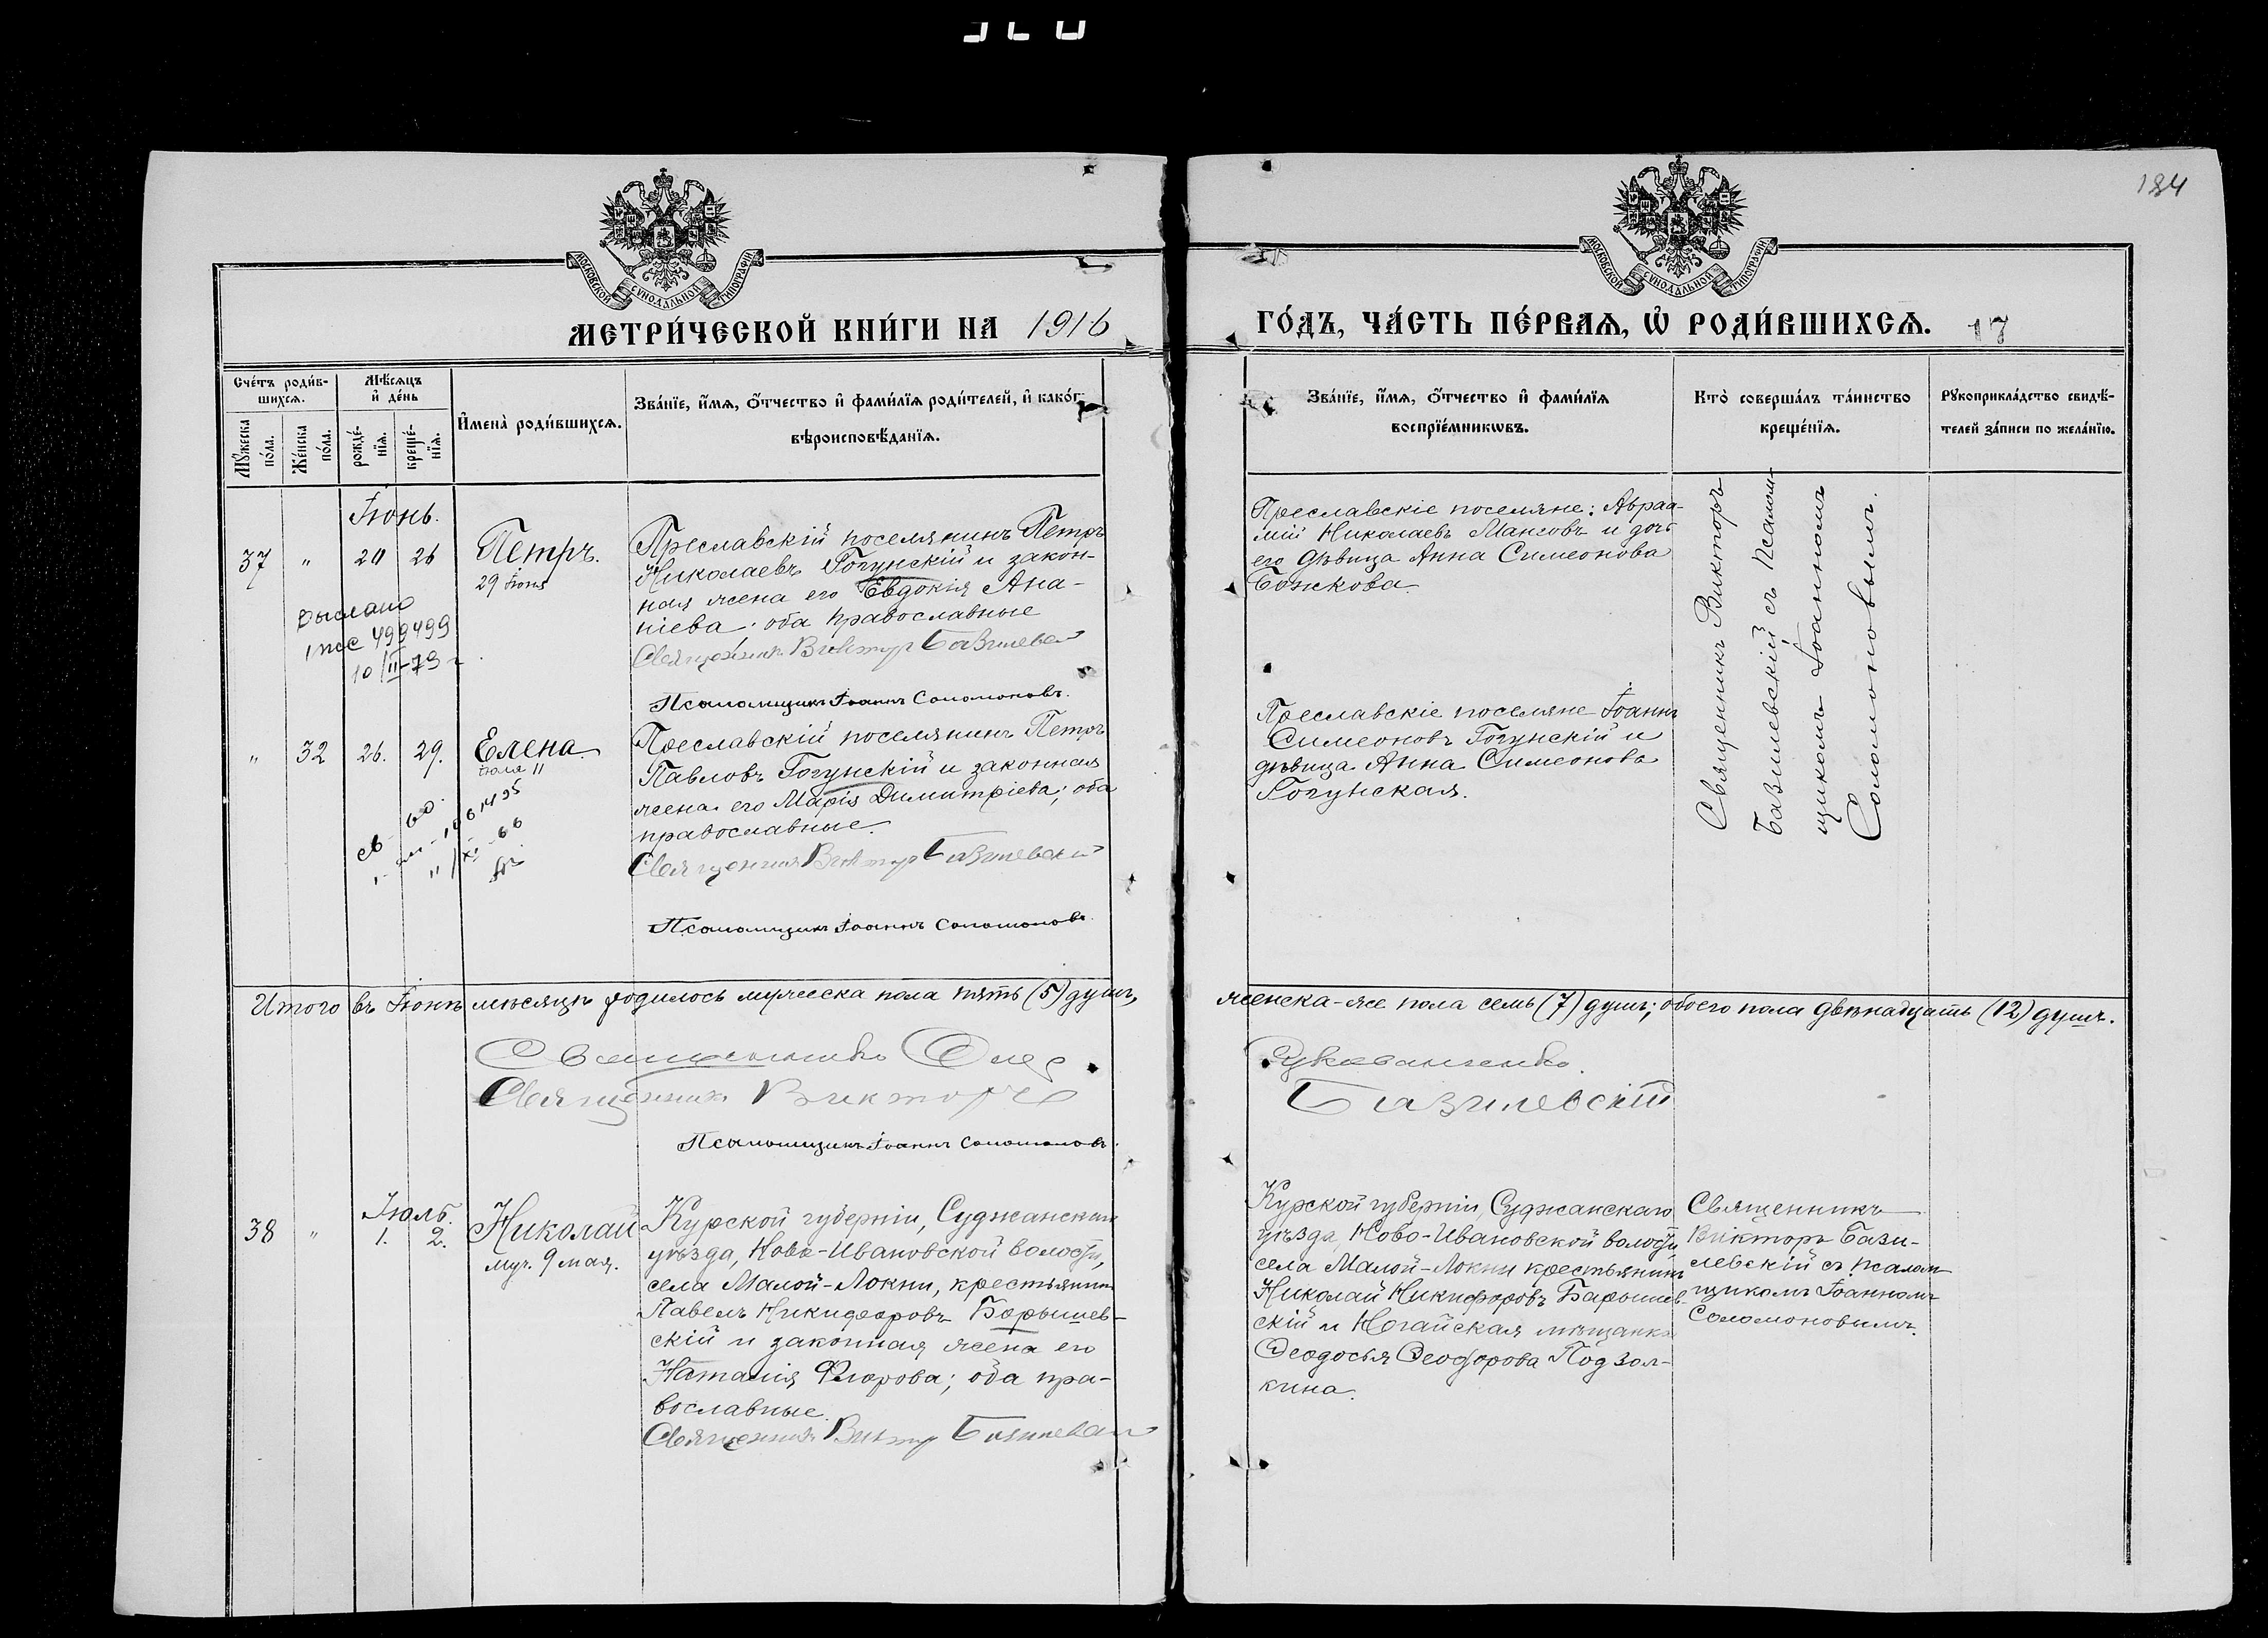 184
МОСКОВСКОЙ СѴНОДАЛЬНОЙ ТИПОГРАФІИ
МОСКОВСКОЙ СѴНОДАЛЬНОЙ ТИПОГРАФІИ
МЕТРИ́ЧЕСКОЙ КНИ́ГИ НА 1916
ГО́ДЪ, ЧА́СТЬ ПЕ́РВАѦ, Ѡ҆ РОДИ́ВШИХСѦ. 17
Сче́тъ роди́в-
шихсѧ.
Мꙋ́жеска
по́ла.
Же́нска
по́ла.
Мѣ́сѧцъ
и҆ де́нь
рожде́-
нїѧ.
креще́-
нїѧ.
И҆мена̀ роди́вшихсѧ.
Зва́нїе, и҆́мѧ, ѻ҆́тчество и҆ фами́лїѧ роди́телей, и҆ како́г
вѣроисповѣ́данїѧ.
Зва́нїе, и҆́мѧ, ѻ҆́тчество и҆ фами́лїѧ
воспрїе́мникѡвъ.
Кто̀ соверша́лъ та́инство
креще́нїѧ.
Рꙋкоприкла́дство свидѣ́-
телей за́писи по жела́нїю.
Іюнь.
37 " 20 26 Петръ.
29 іюня
выслано
499499
10/II-73 г
Преславскій поселянинъ Петръ
Николаевъ Гогунскій и закон-
ная жена его Евдокія Ана-
ніева; оба православные
Священникъ Викторъ Базилевс
Псаломщикъ Іоаннъ Соломоновъ.
Преславскіе поселяне: Авраа-
мій Николаевъ Мансовъ и дочь
его дѣвица Анна Симеонова
Божкова.
Священникъ Викторъ
Базилевскій съ псалом-
щикомъ Іоанномъ
Соломоновымъ.
" 32 26. 29. Елена
іюля 11
Преславскій поселянинъ Петръ
Павловъ Гогунскій и законная
жена его Марія Димитріева; оба
православные.
Священникъ Викторъ Базилевскій
Псаломщикъ Іоаннъ Соломоновъ
Преславскіе поселяне Іоаннъ
Симеоновъ Гогунскій и
дѣвица Анна Симеонова
Гогунская.
Итого въ Іюнѣ мѣсяцѣ родилось мужеска пола пять (5) душъ,
женска-же пола семь (7) душъ; обоего пола двѣнадцать (12) душъ.
Священникъ Викторъ
Базилевскій
Псаломщикъ Іоаннъ Соломоновъ.
Іюль.
38 " 1. 2. Николай
муч. 9 мая.
Курской губерніи, Суджанскаго
уѣзда, Ново-Ивановской волости,
села Малой-Локни, крестьянинъ
Павелъ Никифоровъ Борышев-
скій и законная жена его
Наталія Флорова; оба пра-
вославные.
Священникъ Викторъ Базилевскій
Курской губерніи, Суджанскаго
уѣзда, Ново-Ивановской волости
села Малой-Локни крестьянинъ
Николай Никифоровъ Барышев-
скій и Ногайская мѣщанка
Ѳеодосья Ѳеодорова Подзол-
кина.
Священникъ
Викторъ Бази-
левскій съ псалом-
щикомъ Іоанномъ
Соломоновымъ.